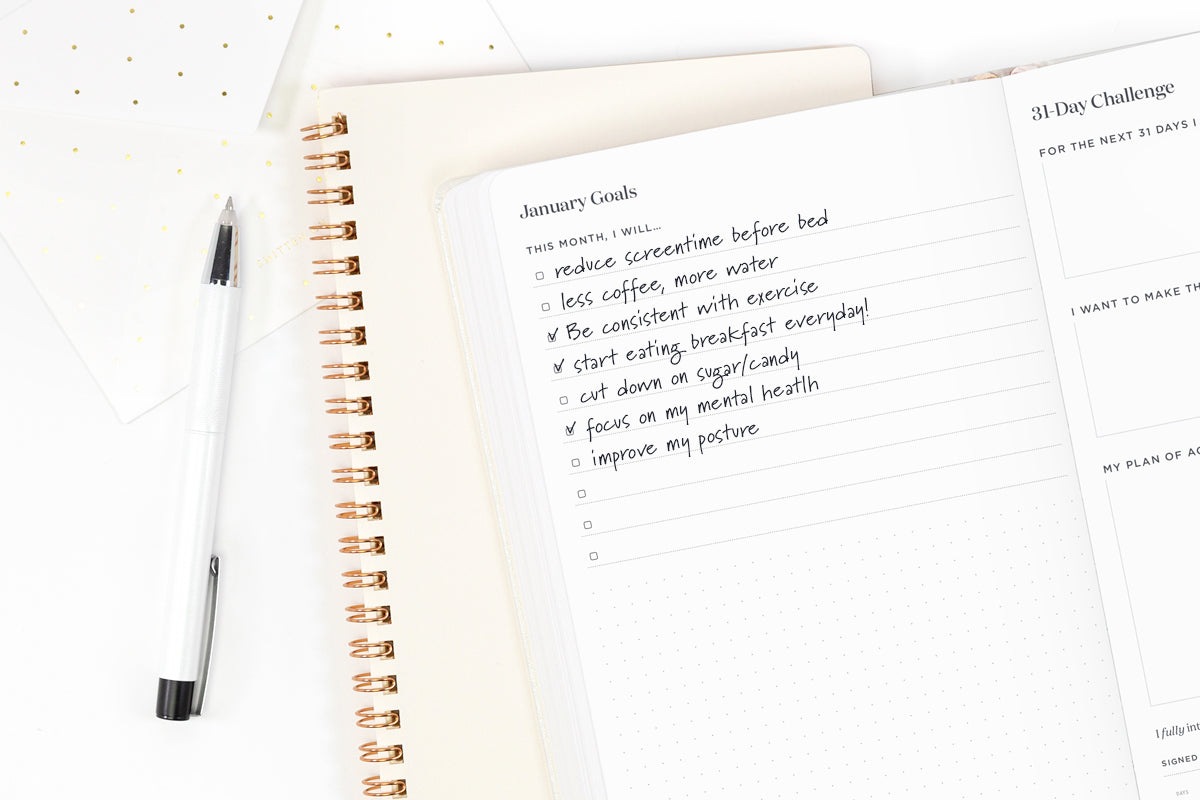 January Goals
THIS MONTH, I WILL...
reduce screentime before bed
less coffee, more water
Be consistent with exercise
start eating breakfast everyday!
cut down on sugar/candy
focus on my mental heatlh
improve my posture
31-Day Challenge
FOR THE NEXT 31 DAYS I
I WANT TO MAKE TH
MY PLAN OF AC
I fully int
SIGNED
DAYS